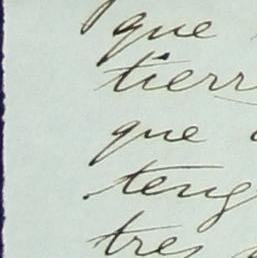 que
tierr
que
teng
tres